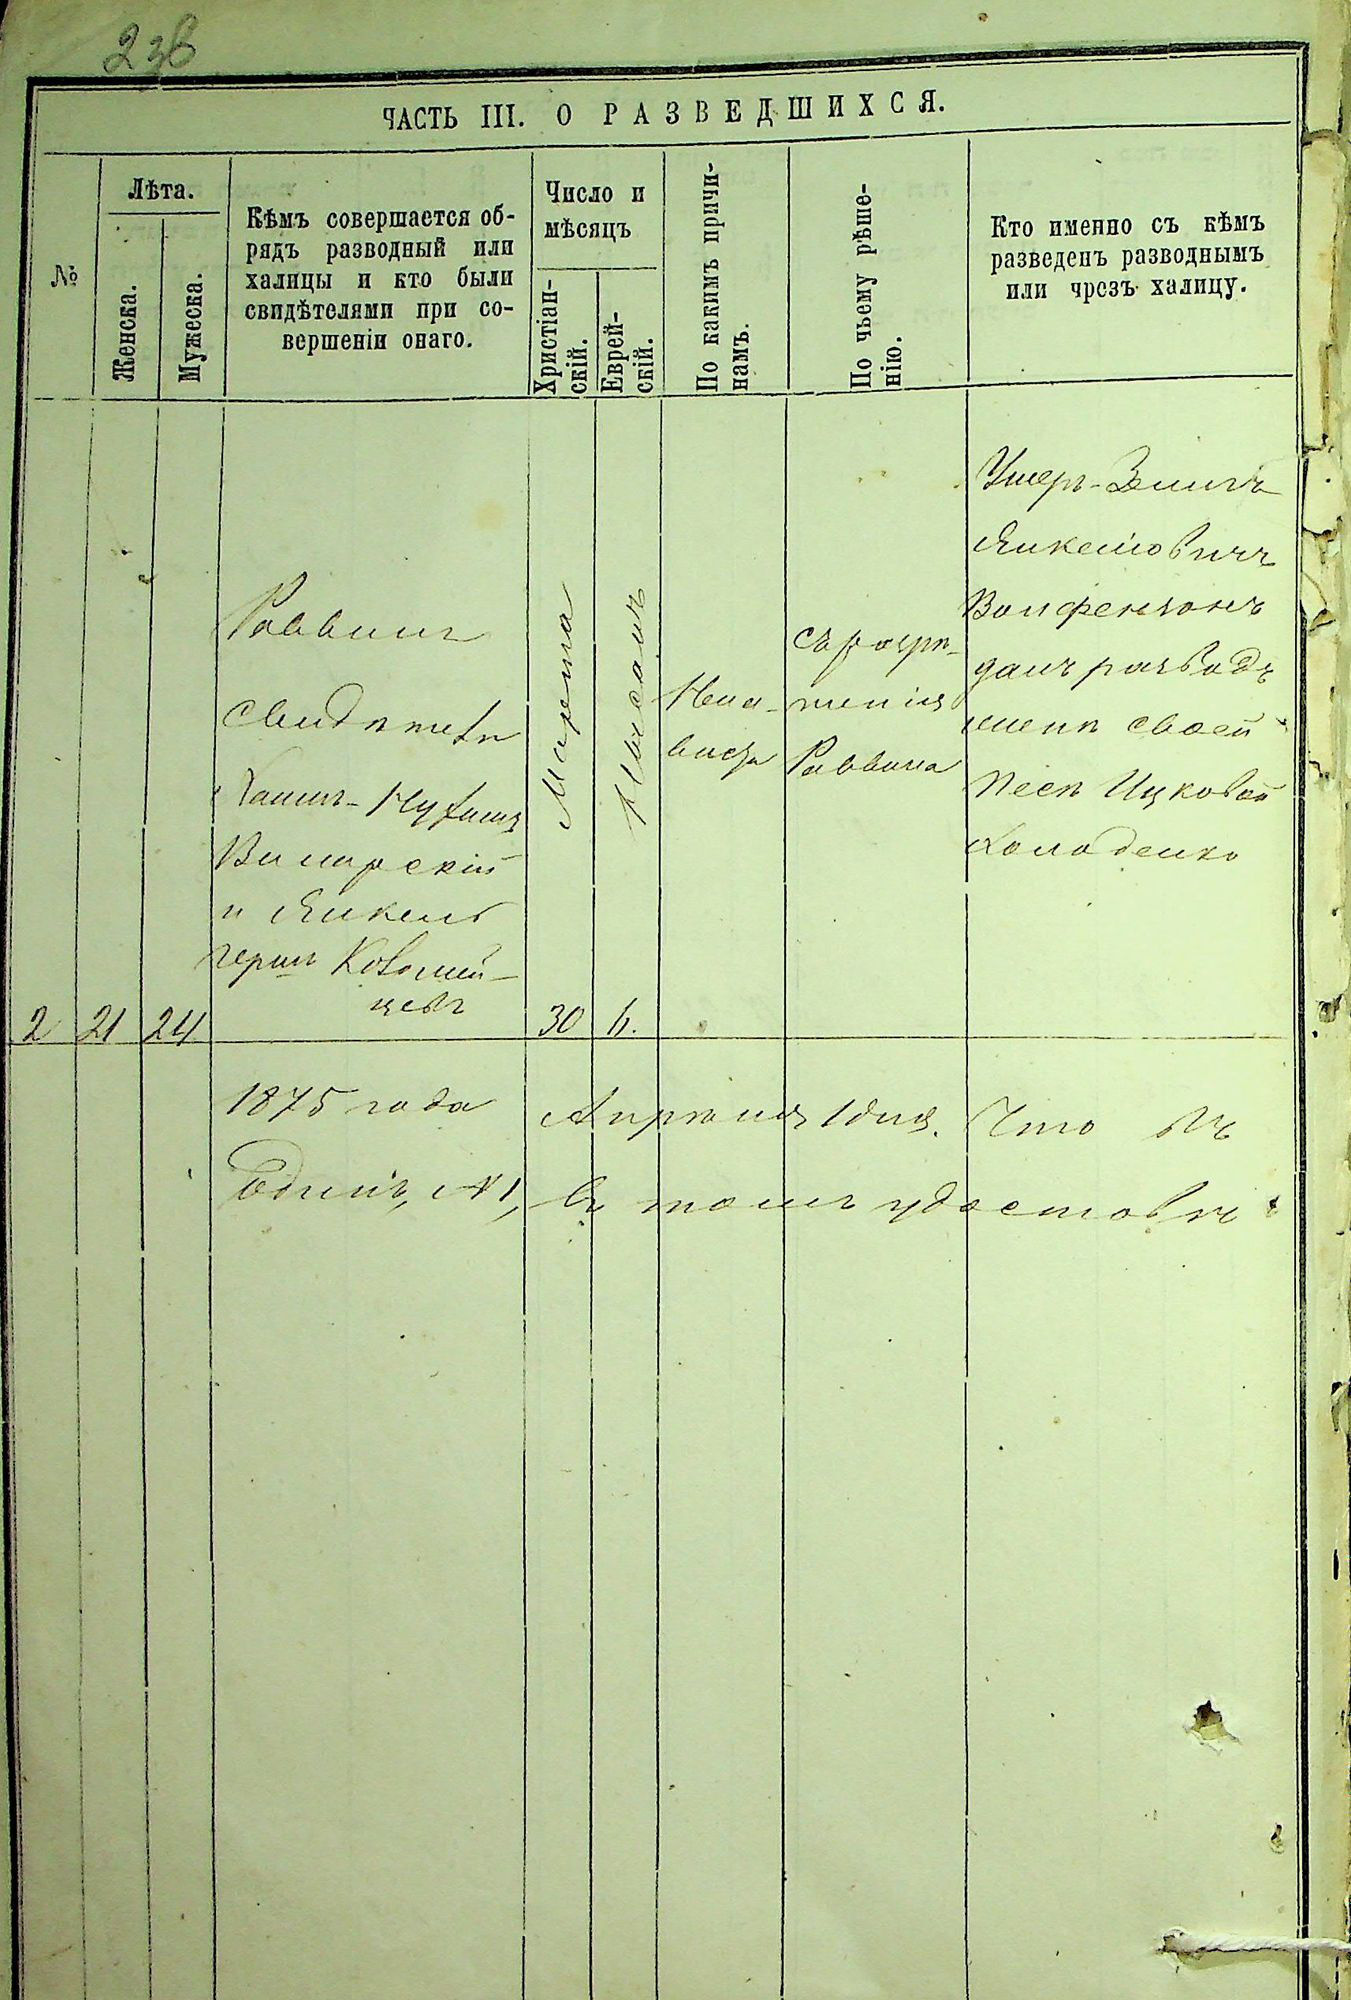 238
ЧАСТЬ III. О РАЗВЕДШИХСЯ.
№
Лѣта.
Женска.
Мужеска.
Кѣмъ совершается об-
рядъ разводный или
халицы и кто были
свидѣтелями при со-
вершеніи онаго.
Число и
мѣсяцъ
Христіан-
скій.
Еврей-
скій.
По какимъ причи-
намъ.
По чьему рѣше-
нію.
Кто именно съ кѣмъ
разведенъ разводнымъ
или чрезъ халицу.
2
21
24
Раввинъ
свидѣтели
Хаимъ-
Вилирскій
и Янкель
Коломій-
цевъ
Марта
30
Нисанъ
6.
Нена-
висти
съ разрѣ-
шенія
Раввина
Ушеръ-Зелигъ
Янкелiовичъ
Вольфензонъ
далъ разводъ
женѣ своей
Песѣ Ицковой
Колоденко
1875 года Апрѣля 1 дня. Что
Одинъ, №1, въ томъ удостовѣ